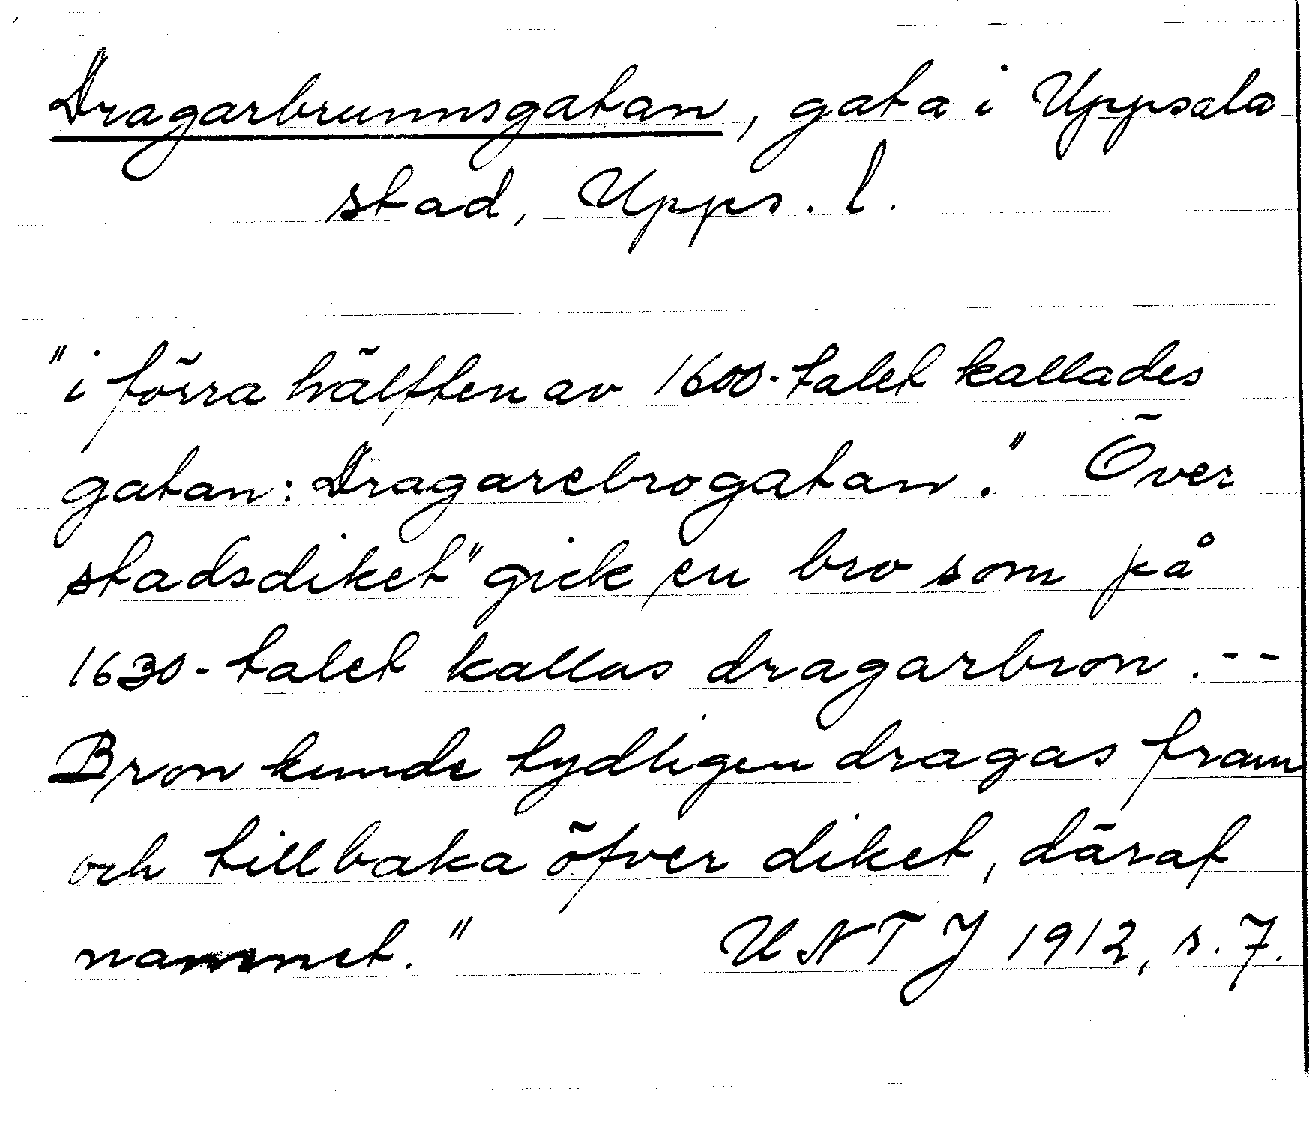 Dragarbrunnsgatan, gata i Uppsala
stad, Upps. l.
"i förra hälften av 1600-talet kallades
gatan: Dragarebrogatan." Över
stadsdiket "gick en bro som på
1630-talet kallas dragarbron. --
Bron kunde tydligen dragas fram
och tillbaka öfver diket, däraf
namnet." UNTJ 1912, s. 7.